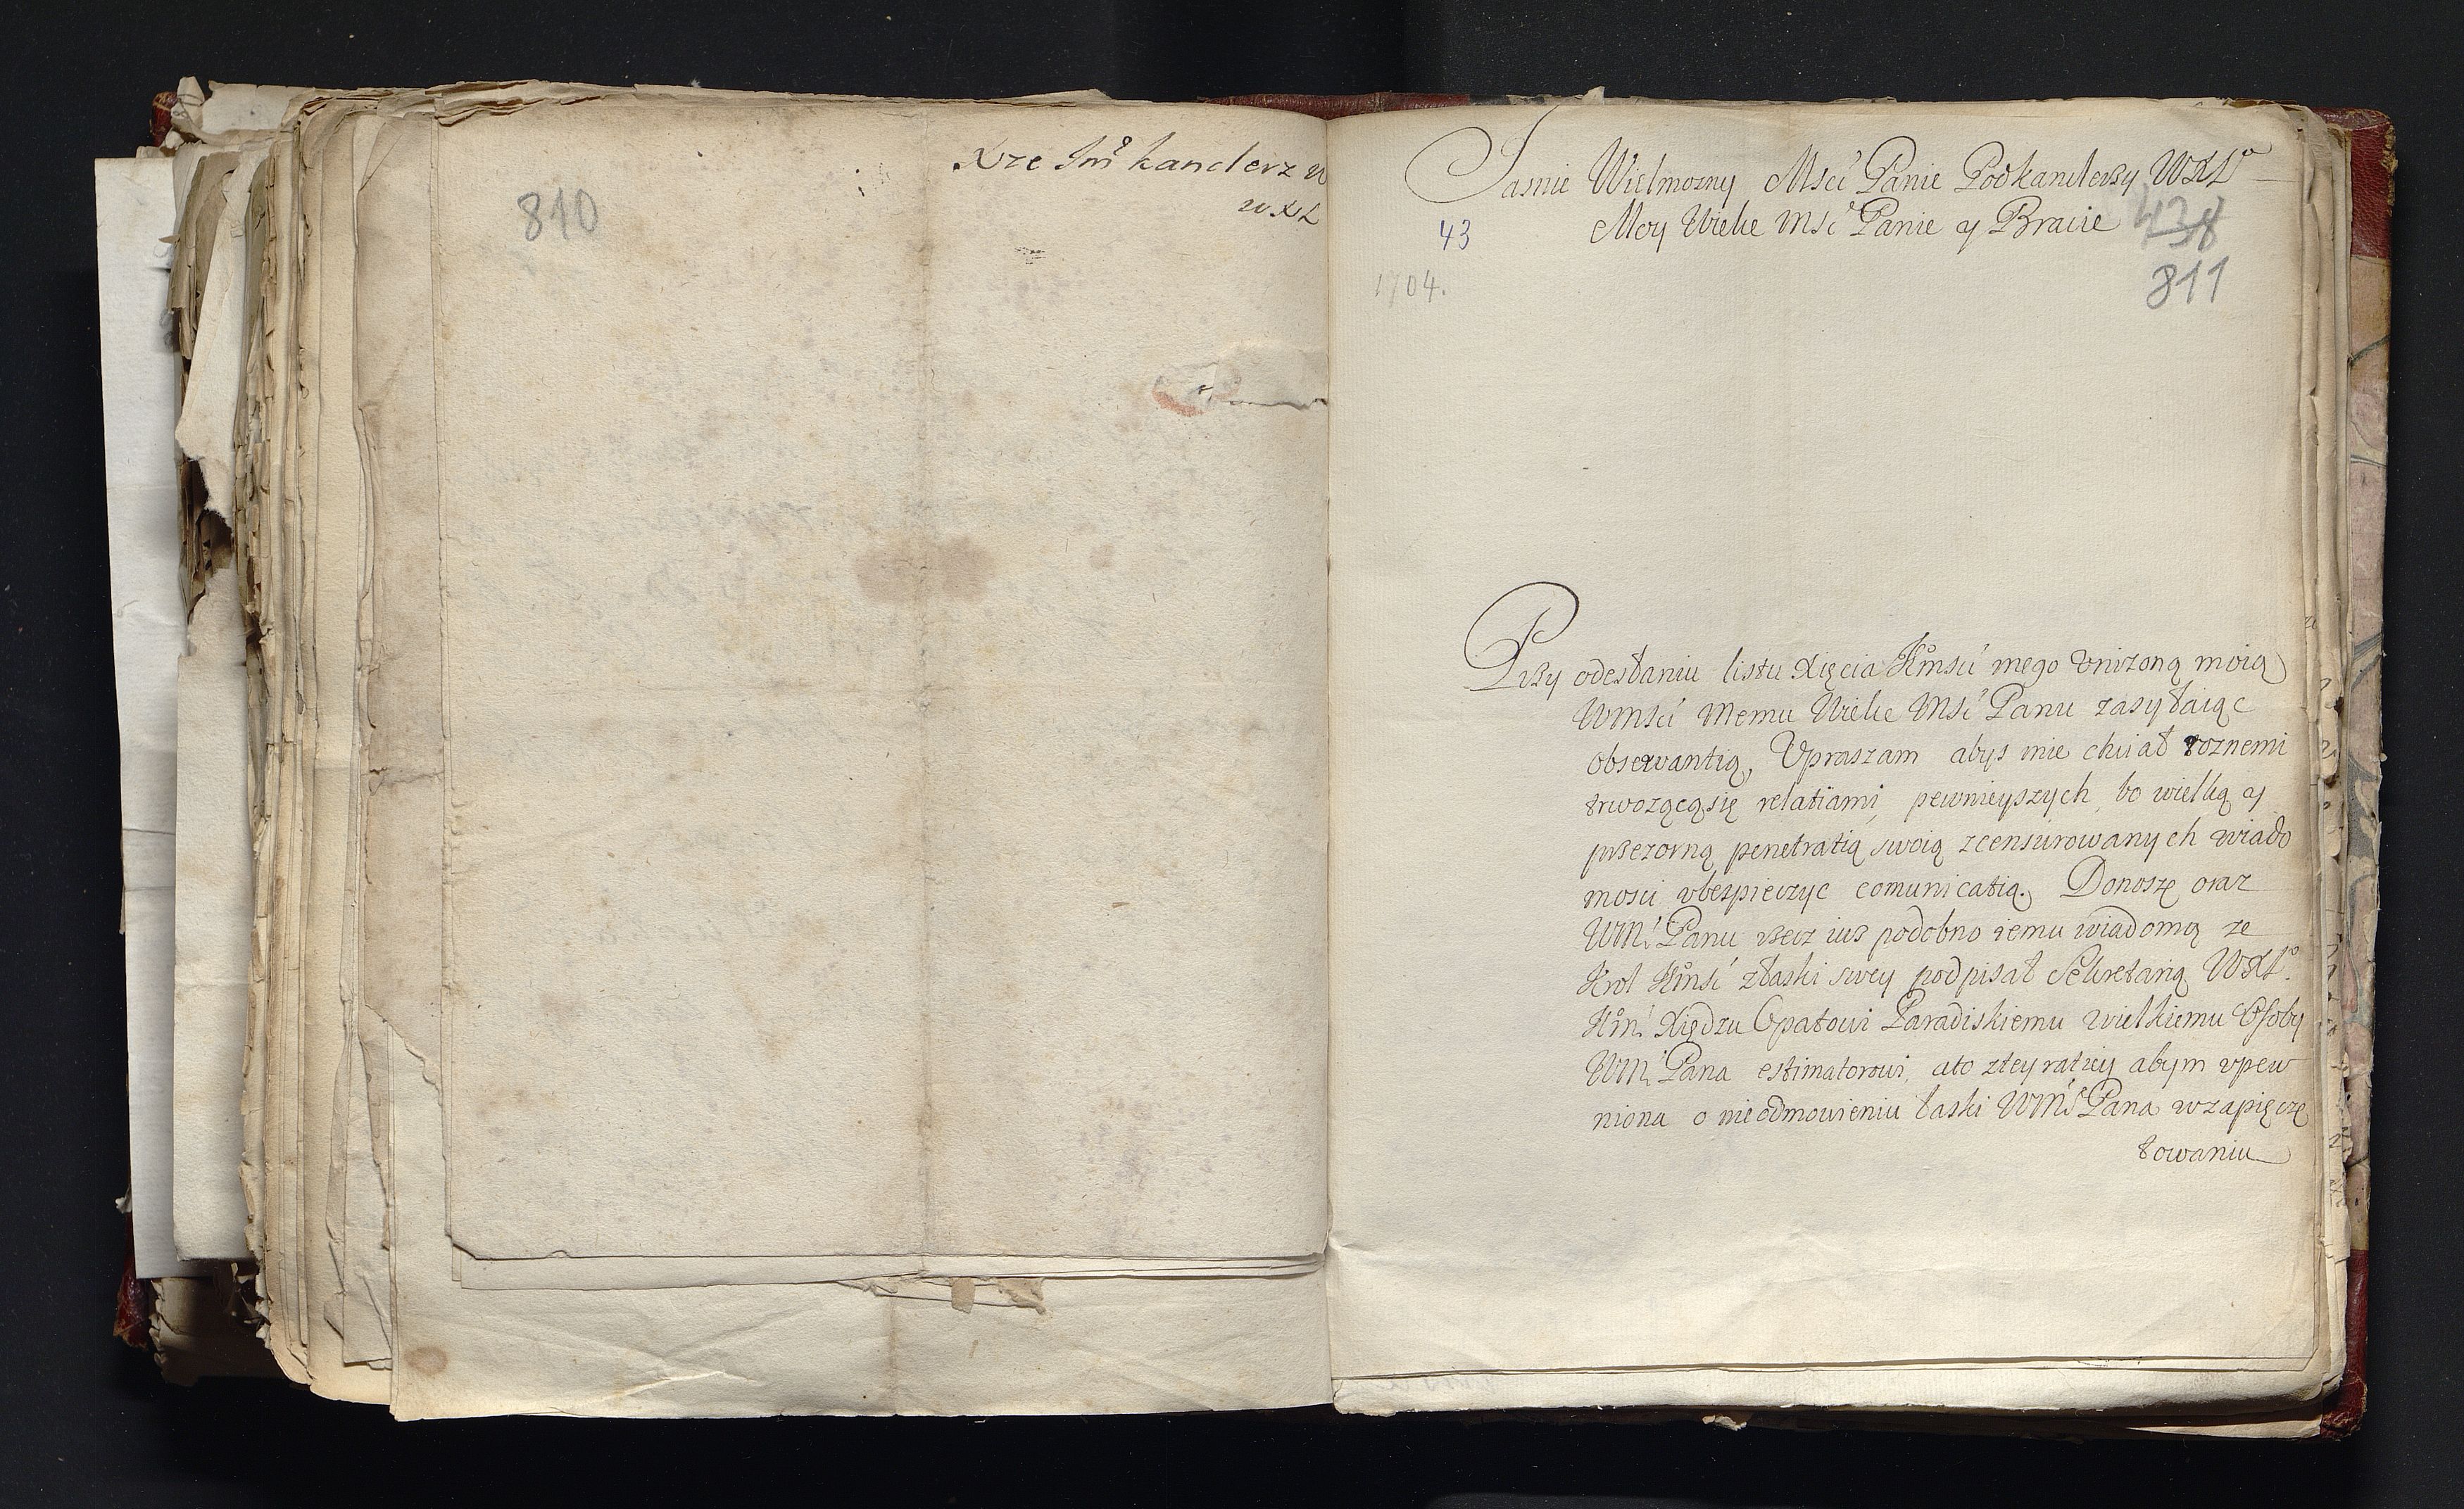 Xże Jmć kanclerz W
W X L
810
Jasnie Wielmozny Msci Panie Podkanclerzy WXLo
Moy Wielce Msć Panie y Bracie
43
438
1704.
811
Przy odesłaniu listu Xięcia JKmsci mego vnizoną moią
WMsci Memu Wielce Msć Panu zasyłaiąc
obserwantią, Vpraszam abys mie chciał roznemi
trwozącąsię relatiami, pewnieyszych, bo wielką y
przezorną penetratią swoią zcensurowanych wiado
mosci vbezpieczyc comunicatią. Donoszę oraz
WMć Panu rzecz iuz podobno iemu wiadomą ze
Krol JKmsć złaski swey podpisał Sekretarią WXLo.
JKmć Xiędzu Opatowi Paradiskiemu wielkiemu Osoby
WMć Pana estimatorowi, ato ztey ratiey abym vpew
niona o nieodmowieniu łaski WMć Pana wzapięczę
towaniu